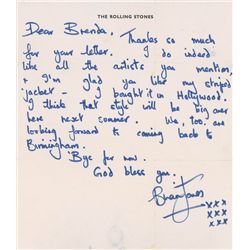 THE ROLLING STONES
Dear Brenda,
Thanks so much
for your letter. I do indeed
like all the artists you mention,
& I'm glad you like my striped
jacket - I bought it in Hollywood.
I think that style will be big over
here next summer. We, too, are
looking forward to coming back to
Birmingham.
'Bye for now.
God bless you.
Brian Jones
xxx
xxx
xx